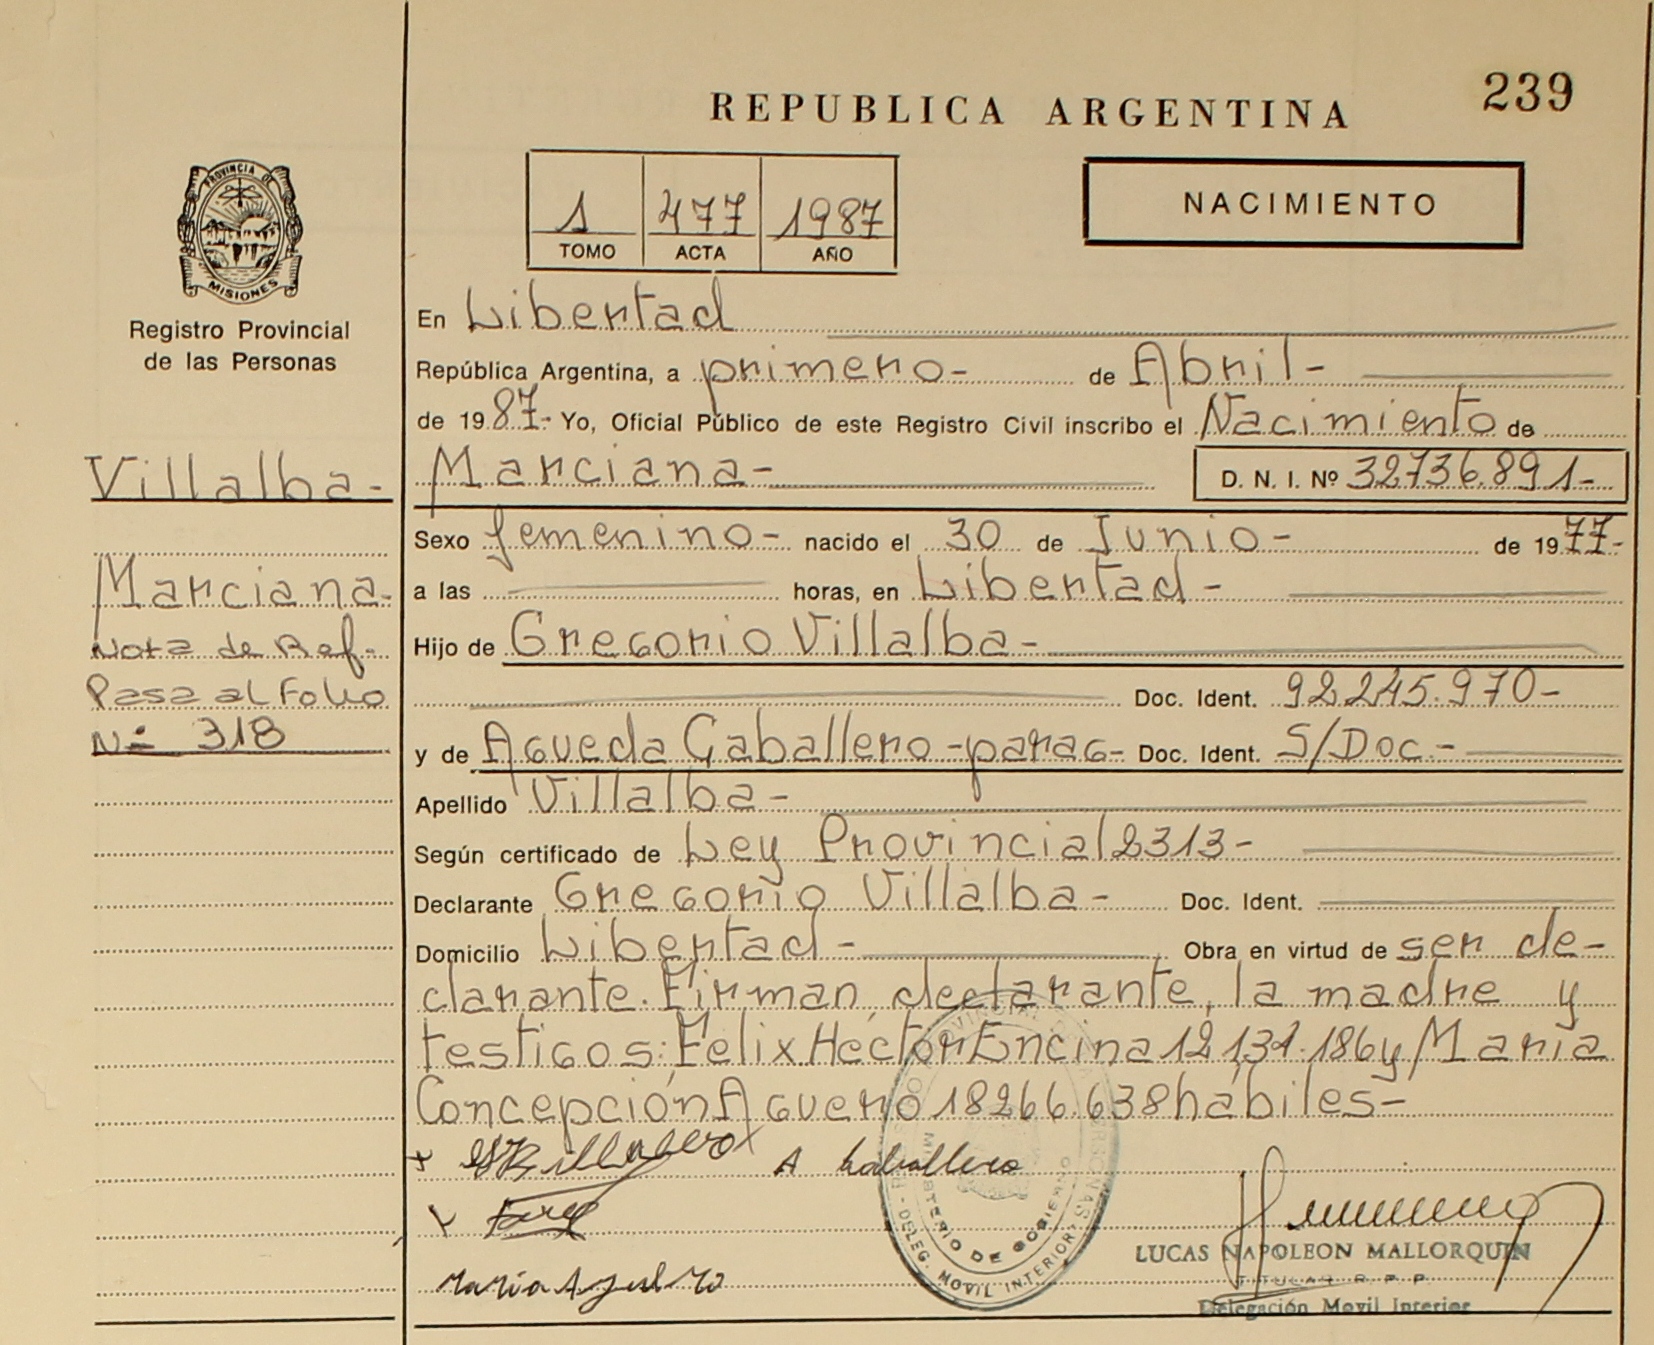 239
REPUBLICA ARGENTINA
1 477 1987
TOMO ACTA AÑO
NACIMIENTO
PROVINCIA DE
MISIONES
Registro Provincial
de las Personas
Villalba-
Marciana-
Nota de Ref-
Pasa al Folio
Nº 318
En Libertad
República Argentina, a primero- de Abril-
de 1987- Yo, Oficial Público de este Registro Civil inscribo el Nacimiento de
Marciana- D. N. I. Nº 32736.891-
Sexo femenino- nacido el 30 de Junio- de 1977-
a las horas, en Libertad-
Hijo de Gregorio Villalba-
Doc. Ident. 92.245.970-
y de Agueda Caballero-parag- Doc. Ident. S/Doc.-
Apellido Villalba-
Según certificado de Ley Provincial 2313-
Declarante Gregorio Villalba- Doc. Ident.
Domicilio Libertad- Obra en virtud de ser de-
clarante. Firman, declarante, la madre y
testigos: Felix Hector Encina 12.131.186 y Maria
Concepción Aguero 18266.638 habiles-
A Caballero
MINISTERIO DE GOBIERNO
DELEG. MOVIL INTERIOR
LUCAS NAPOLEON MALLORQUIN
TITULAR R. P. P.
Delegación Movil Interior